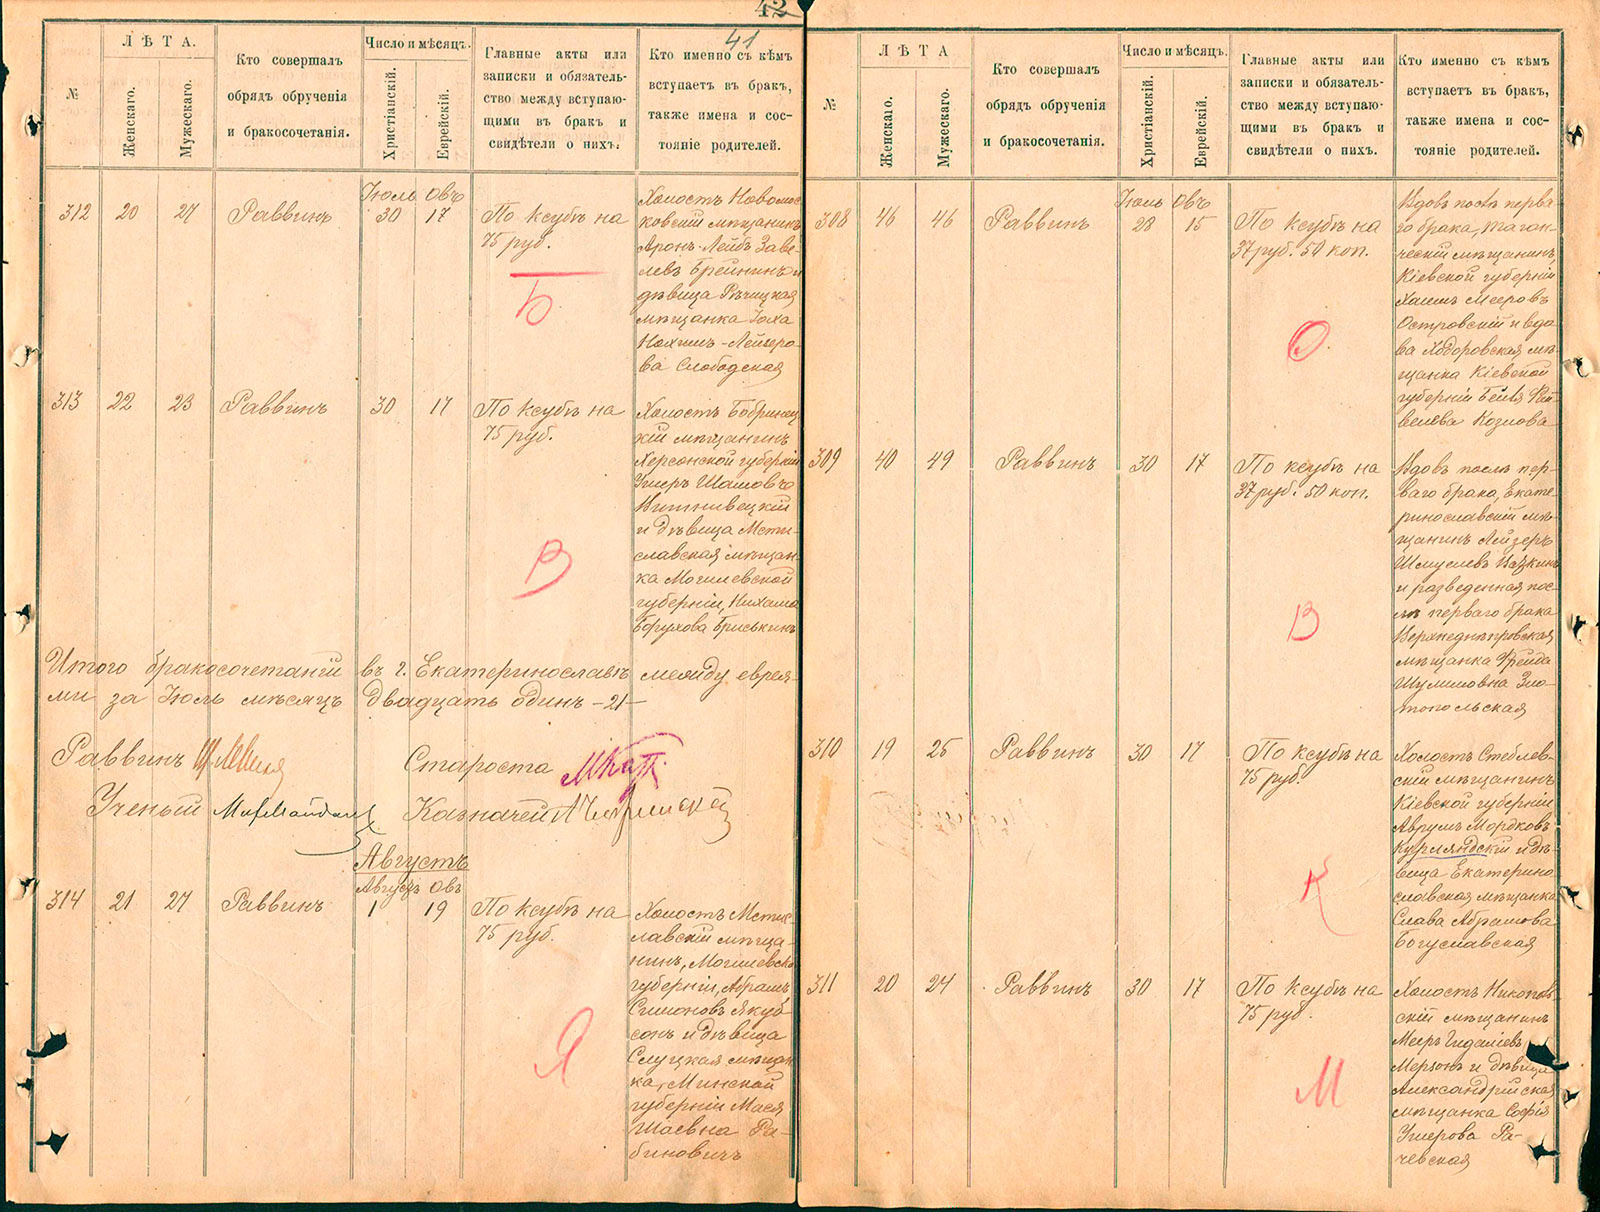 42
41
№
ЛѢТА.
Женскаго.
Мужескаго.
Кто совершалъ
обрядъ обрученія
и бракосочетанія.
Число и мѣсяцъ.
Христіанскій.
Еврейскій.
Главные акты или
записки и обязатель-
ство между вступаю-
щими въ бракъ и
свидѣтели о нихъ.
Кто именно съ кѣмъ
вступаетъ въ бракъ,
также имена и сос-
тояніе родителей.
312 20 27 Раввинъ Іюль 30 Овъ 17
По ксубѣ на
75 руб.
Б
Холостъ Новомос-
ковскій мѣщанинъ
Аронъ-Лейбъ Заве-
левъ Брейнинъ и
дѣвица Рѣчицкая
мѣщанка Хая
Нохимъ-Лейзеро-
ва Слободская
313 22 23 Раввинъ 30 17
По ксубѣ на
75 руб.
В
Холостъ Бобринец-
кій мѣщанинъ
Херсонской губерніи
Ушеръ
и дѣвица Мсти-
славская мѣщан-
ка Могилевской
губерніи, Нихама
Борухова Бриськинъ
Итого бракосочетаній въ г. Екатеринославѣ между еврея-
ми за Іюль мѣсяцъ двадцать одинъ -21-
Раввинъ Староста
Ученый Казначей
Августъ
314 21 27 Раввинъ Августъ 1 Овъ 19
По ксубѣ на
75 руб.
Я
Холостъ Мстис-
лавскій мѣща-
нинъ, Могилевской
губерніи, Абрамъ
Симоновъ Якуб-
сонъ и дѣвица
Слуцкая мѣщан-
ка, Минской
губерніи Мася
Шаевна Ра-
биновичъ
№
ЛѢТА
Женскаго.
Мужескаго.
Кто совершалъ
обрядъ обрученія
и бракосочетанія.
Число и мѣсяцъ.
Христіанскій.
Еврейскій.
Главные акты или
записки и обязатель-
ство между вступаю-
щими въ бракъ и
свидѣтели о нихъ.
Кто именно съ кѣмъ
вступаетъ въ бракъ,
также имена и сос-
тояніе родителей.
308 46 46 Раввинъ Іюль 28 Овъ 15
По ксубѣ на
37 руб. 50 коп.
О.
Вдовъ послѣ перва-
го брака, таган-
ческій мѣщанинъ,
Кіевской губерніи
Хаимъ Мееровъ
Островскій и вдо-
ва Ходоровская мѣ-
щанка Кіевской
губерніи Бейла Фай-
велева Козлова
309 40 49 Раввинъ 30 17
По ксубѣ на
37 руб. 50 коп.
В
Вдовъ послѣ пер-
ваго брака, Екате-
ринославскій мѣ-
щанинъ Лейзеръ
Шмуелевъ
и разведенная пос-
лѣ перваго брака
Верхнеднѣпровская
мѣщанка Фрейда
Шулимовна Зло-
топольская
310 19 25 Раввинъ 30 17
По ксубѣ на
75 руб.
К
Холостъ Стеблев-
скій мѣщанинъ
Кіевской губерніи
Аврумъ Мордковъ
Курляндскій и дѣ-
вица Екатерино-
славская мѣщанка
Слава Абрамова
Богуславская
311 20 24 Раввинъ 30 17
По ксубѣ на
75 руб.
М
Холостъ Никополь-
скій мѣщанинъ
Мееръ Гидаліевъ
Мерзонъ и дѣвица
Александрійская
мѣщанка Софія
Ушерова Ра-
чевская